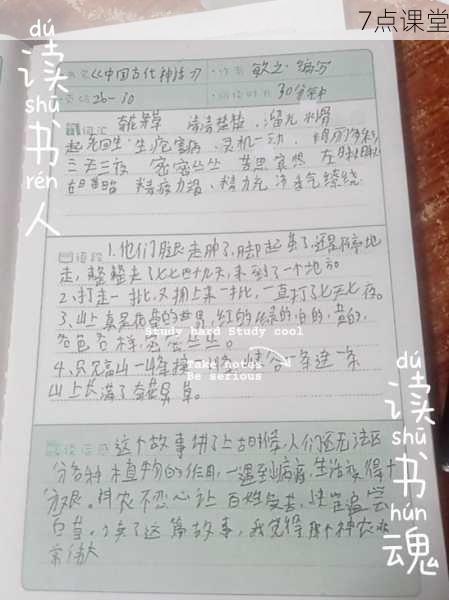 7点课堂
dú
读
shū
书
rén
人
《中国古代神话》
·作者 敏之 编写
26-30
30分钟
词汇 清清楚楚 溜光水滑
起死回生 生疮害病 灵机一动
三天三夜 密密丛丛 苦思冥想
精疲力竭 精力充沛 香气缭绕
语段 1.他们腿走肿了,脚起茧了,还是不停地
走,整整走了七七四十九天,来到了一个地方
2、打走一批,又拥上来一批,一直打了七天七夜。
3、山上真是花草的世界,红的绿的,白的,黄的,
各色各样,密密丛丛。
Study hard Study cool
4、只见高山一峰接一峰,峡谷一条连一条
山上长满了奇花异草。
Take notes
Be serious
读后感 这个故事讲了上古时候,人们还无法区
分各种植物的作用,一遇到病痛,生活变得十
分艰。神农不忍心让百姓受苦,决定遍尝
百草。读了这篇故事,我觉得那个神农非
常伟大
dú
读
shū
书
hún
魂